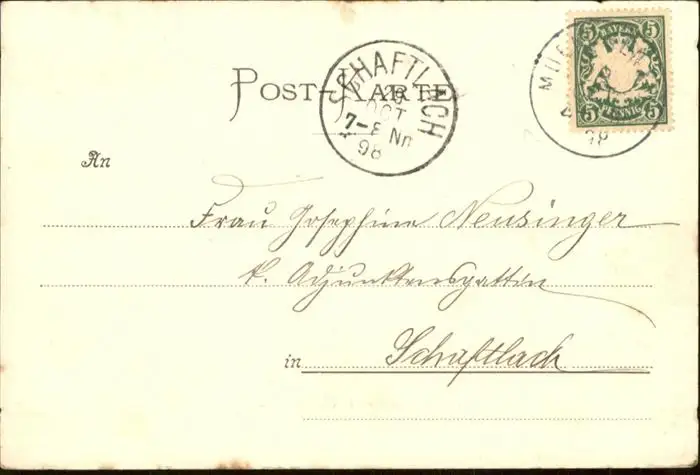 POST-KARTE
SCHAFTLACH
OCT
7-8 Nn
98
BAYERN
5 5
5 5
PFENNIG
98
An
Frau Josephine Neusinger
k. Adjunktensgattin
in Schaftlach